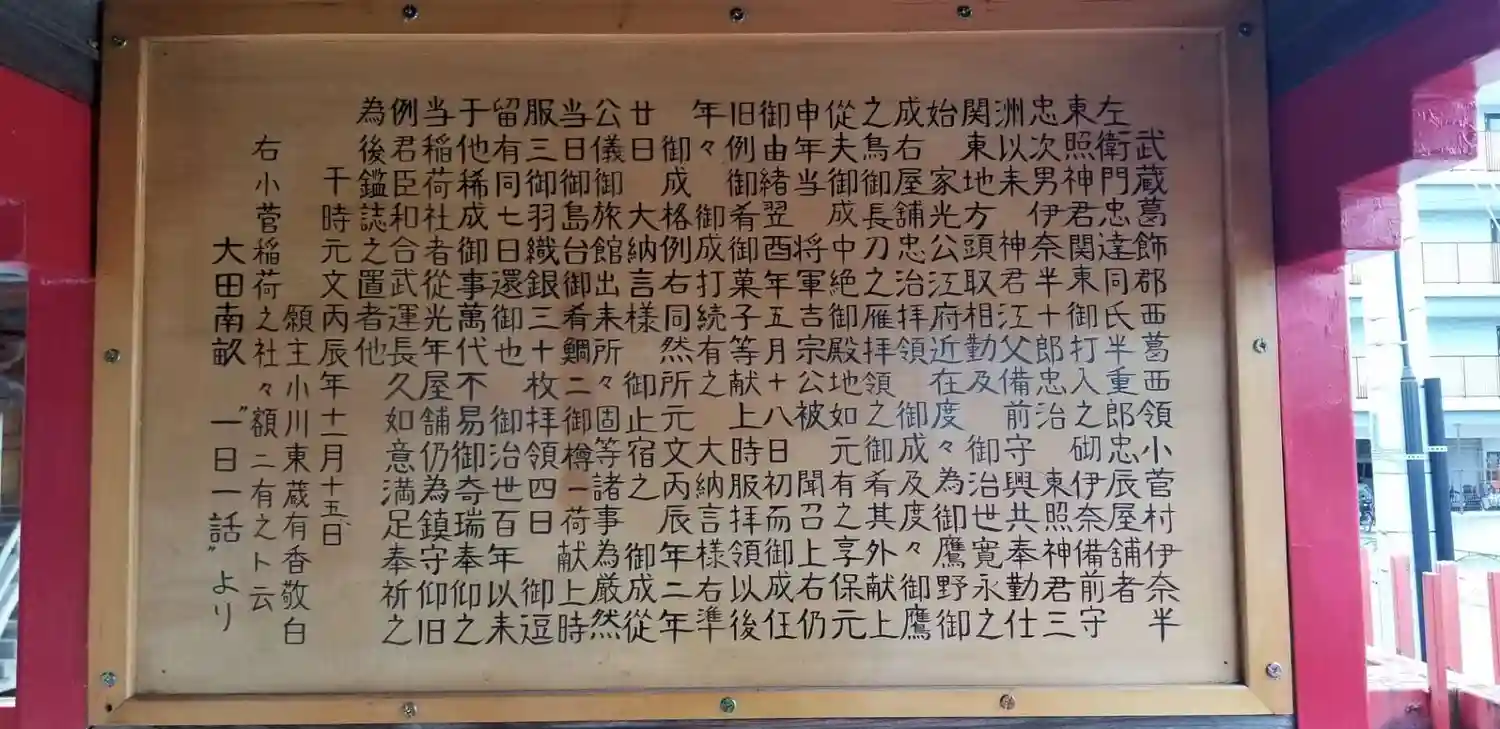 武蔵葛飾郡西葛西領小菅村伊奈半
左衛門忠達同氏半重郎忠辰屋舗者
東照神君関東御打入之砌伊奈備前守
忠次男伊奈半十郎忠治 東照神君三
洲以来 神君江父備前守興共奉勤仕
関東地方頭取相勤及 御治世寛永之
始 家光公江府近在度々為御鷹野御
成右屋舗忠治拝領 御成及度々御鷹
之鳥御長刀之雁拝領之御肴其外献上
従夫御成中絶御殿地如元有之享保元
申年当 将軍吉宗公被 聞召上右仍
御由緒翌酉年五月十八日初而御成任
旧例御肴御菓子等献上時服拝領以後
年々 御成打続有之 大納言様右準
御成格例右同然所元文丙辰年二年
廿日 大納言様 御止宿之 御成従
公儀御旅館出来所々固等諸事為厳然
当日御島台御肴鯛二御樽一荷献上時
服三御羽織銀三十枚拝領四日 御逗
留有同七日還御也 御治世百年以来
于他稀成御事萬代不易御奇瑞奉仰之
当稲荷社者従光年屋舗仍為鎮守仰旧
例君臣和合武運長久如意満足奉祈之
為後鑑誌之置者他
干時元文丙辰年十一月十五日
願主小川東蔵有香敬白
右小菅稲荷之社々額ニ有之ト云
大田南畝 "一日一話"より